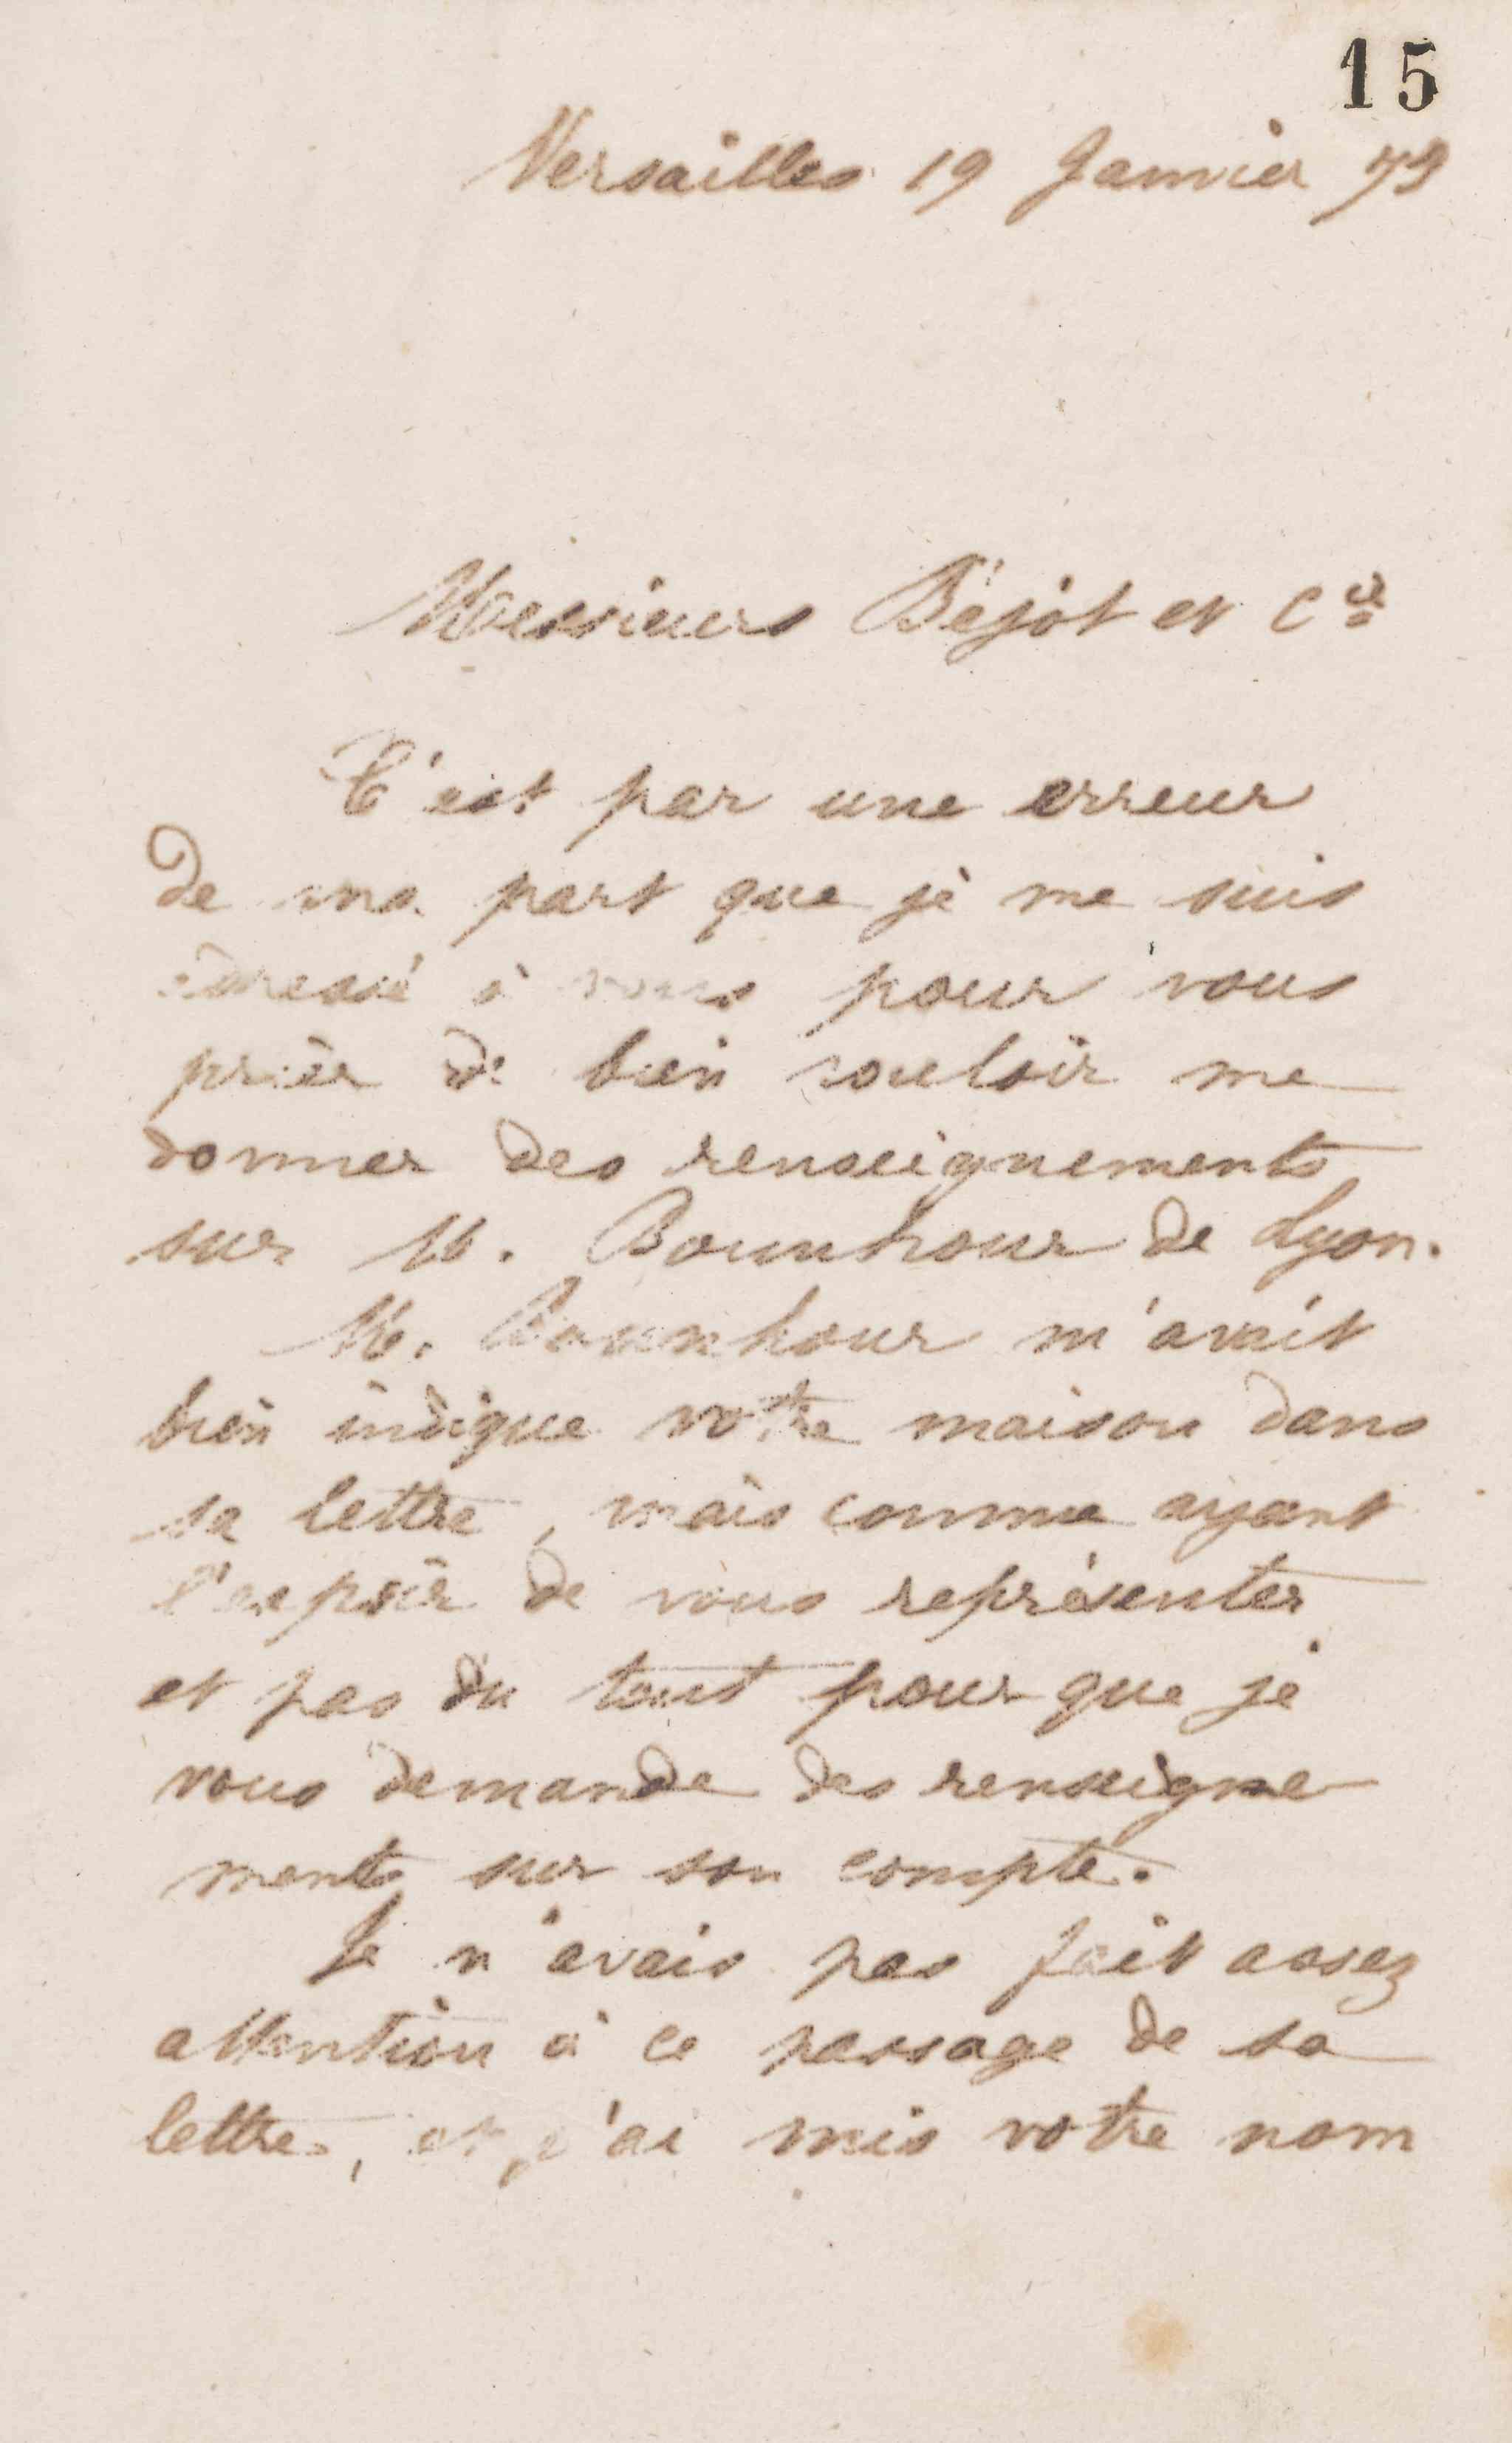 15
Versailles 19 Janvier 73
Messieurs Béjot et Cie
C'est par une erreur
de ma part que je me suis
adressé à vous pour vous
prier de bien vouloir me
donner des renseignements
sur M. Bounhour de Lyon.
M. Bounhour m'avait
bien indiqué votre maison dans
sa lettre, mais comme ayant
l'espoir de vous représenter
et pas du tout pour que je
vous demande des renseigne
ments sur son compte.
Je n'avais pas fait assez
attention à ce passage de sa
lettre, et j'ai mis votre nom